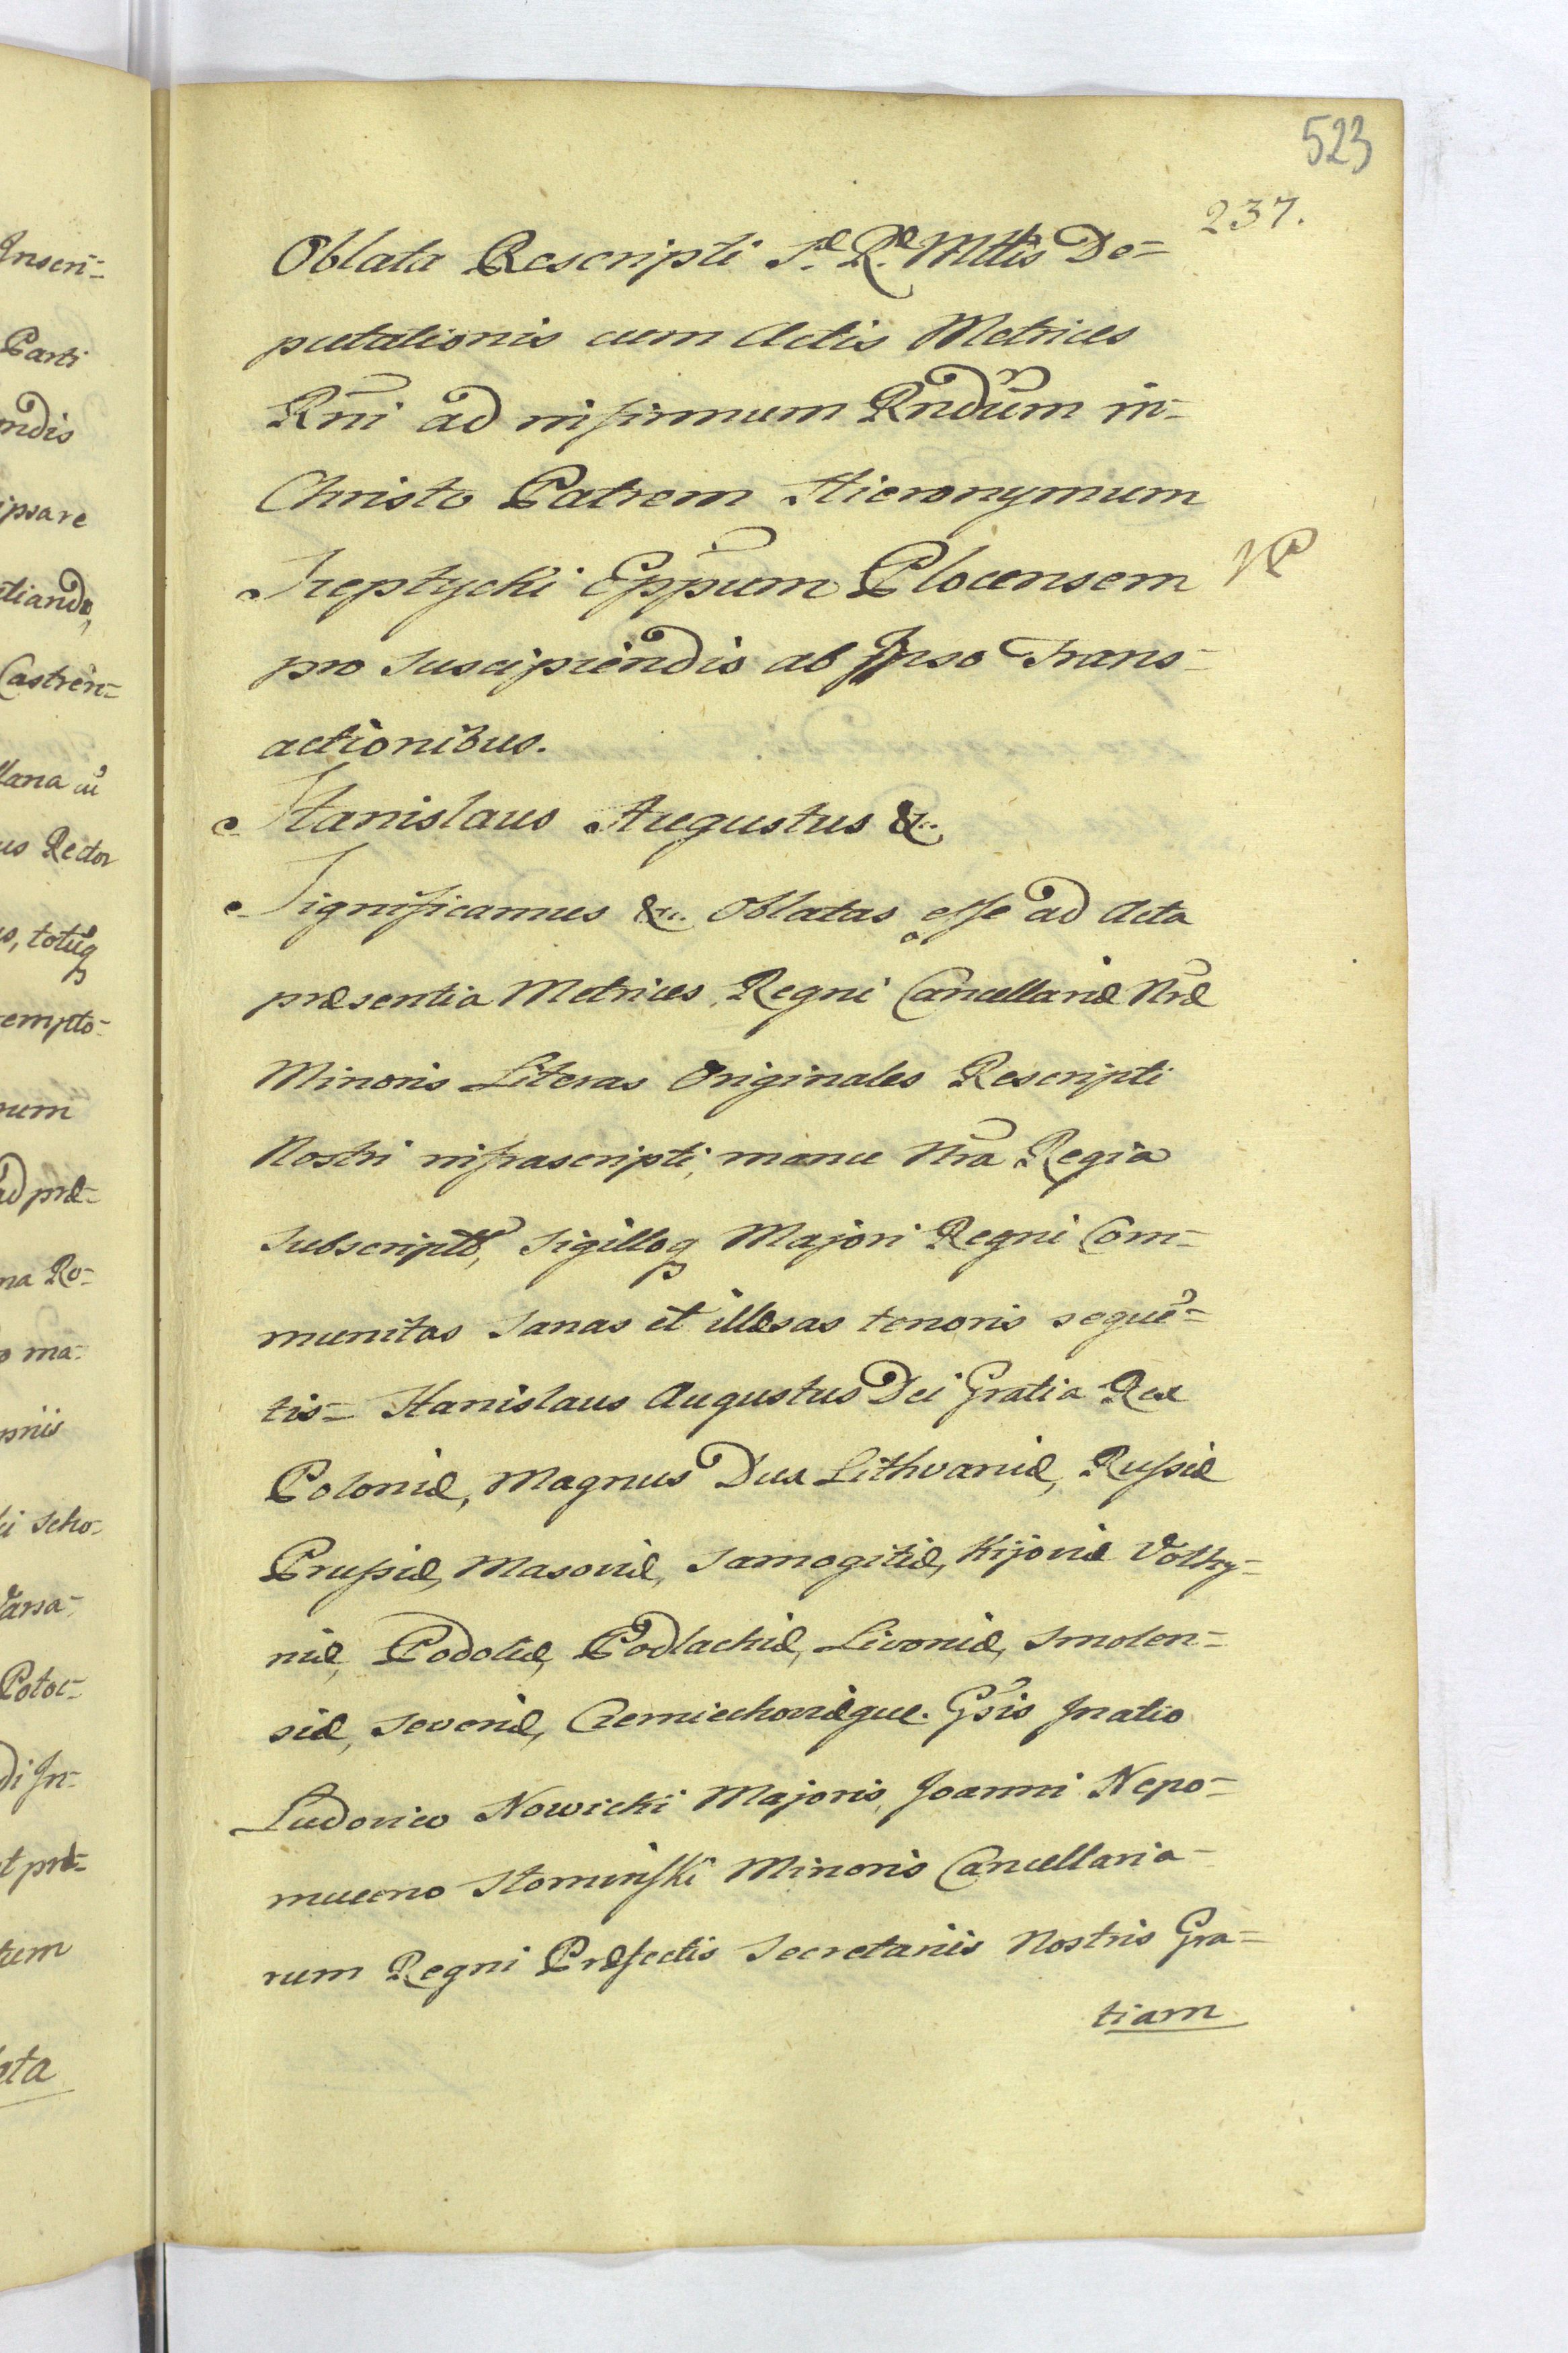 523
237.
Oblata Rescripti S.æ R.æ Mttis De=
putationis cum Actis Metrices
Rni ad infirmum Rndum in-
Christo Patrem Hieronymum
Szeptycki Eppum Plocensem
pro suscipiendis ab Ipso Trans-
actionibus.
Stanislaus Augustus &c.
Significamus &c. Oblatas esse ad Acta
præsentia Metrices Regni Cancellariæ Nræ
Minoris Literas Originales Rescripti
Nostri infrascripti, manu Nra Regia
Subscripto, Sigilloq Majori Regni Com-
munitas Sanas et illæsas tenoris sequē=
tis= Stanislaus Augustus Dei Gratia Rex
Poloniæ, Magnus Dux Lithvaniæ, Russiæ
Prussiæ, Masoviæ, Samogitiæ, Kijoviæ Volhy=
niæ, Podoliæ, Podlachiæ, Livoniæ, Smolen=
siæ, Severiæ, Czerniechoviæque. Gsis Ignatio
Ludovico Nowicki Majoris, Joanni Nepo=
muceno Słominski Minoris Cancellaria-
rum Regni Præfectis Secretariis Nostris Gra=
tiam
Inseri=
Parti
ndis
ipsare
tiando,
Castren=
llana cū
us Rector
s, totūq
empto-
num
ad præ-
na Ro-
o ma-
pnii
ki Scho-
Varsa-
Potoc=
di In-
t præ-
tum
ata